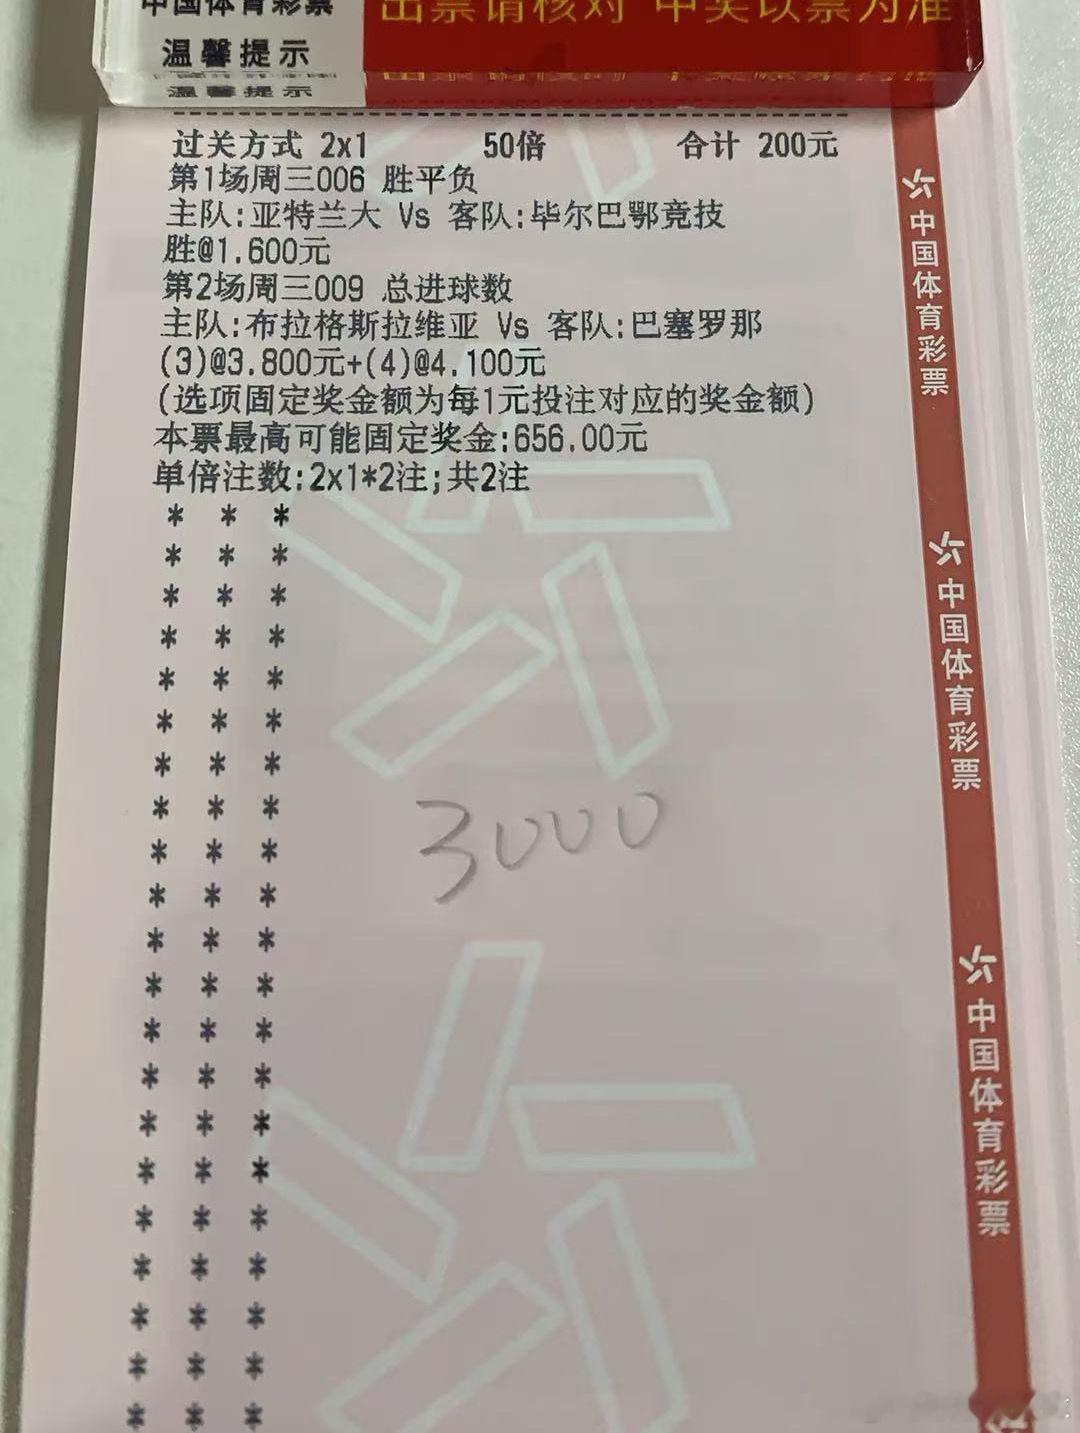 中国体育彩票
温馨提示
出票请核对 中奖以票为准
温馨提示
过关方式 2x1 50倍 合计 200元
第1场周三006 胜平负
主队:亚特兰大 Vs 客队:毕尔巴鄂竞技
胜@1.600元
第2场周三009 总进球数
主队:布拉格斯拉维亚 Vs 客队:巴塞罗那
(3)@3.800元+(4)@4.100元
(选项固定奖金额为每1元投注对应的奖金额)
本票最高可能固定奖金:656.00元
单倍注数:2x1*2注;共2注
* * *
* * *
* * *
* * *
* * *
* * *
* * *
* * *
* * *
* * *
* * *
* * *
* * *
* * *
* * *
* * *
* * *
* * *
* * *
* * *
* * *
3000
中国体育彩票
中国体育彩票
中国体育彩票